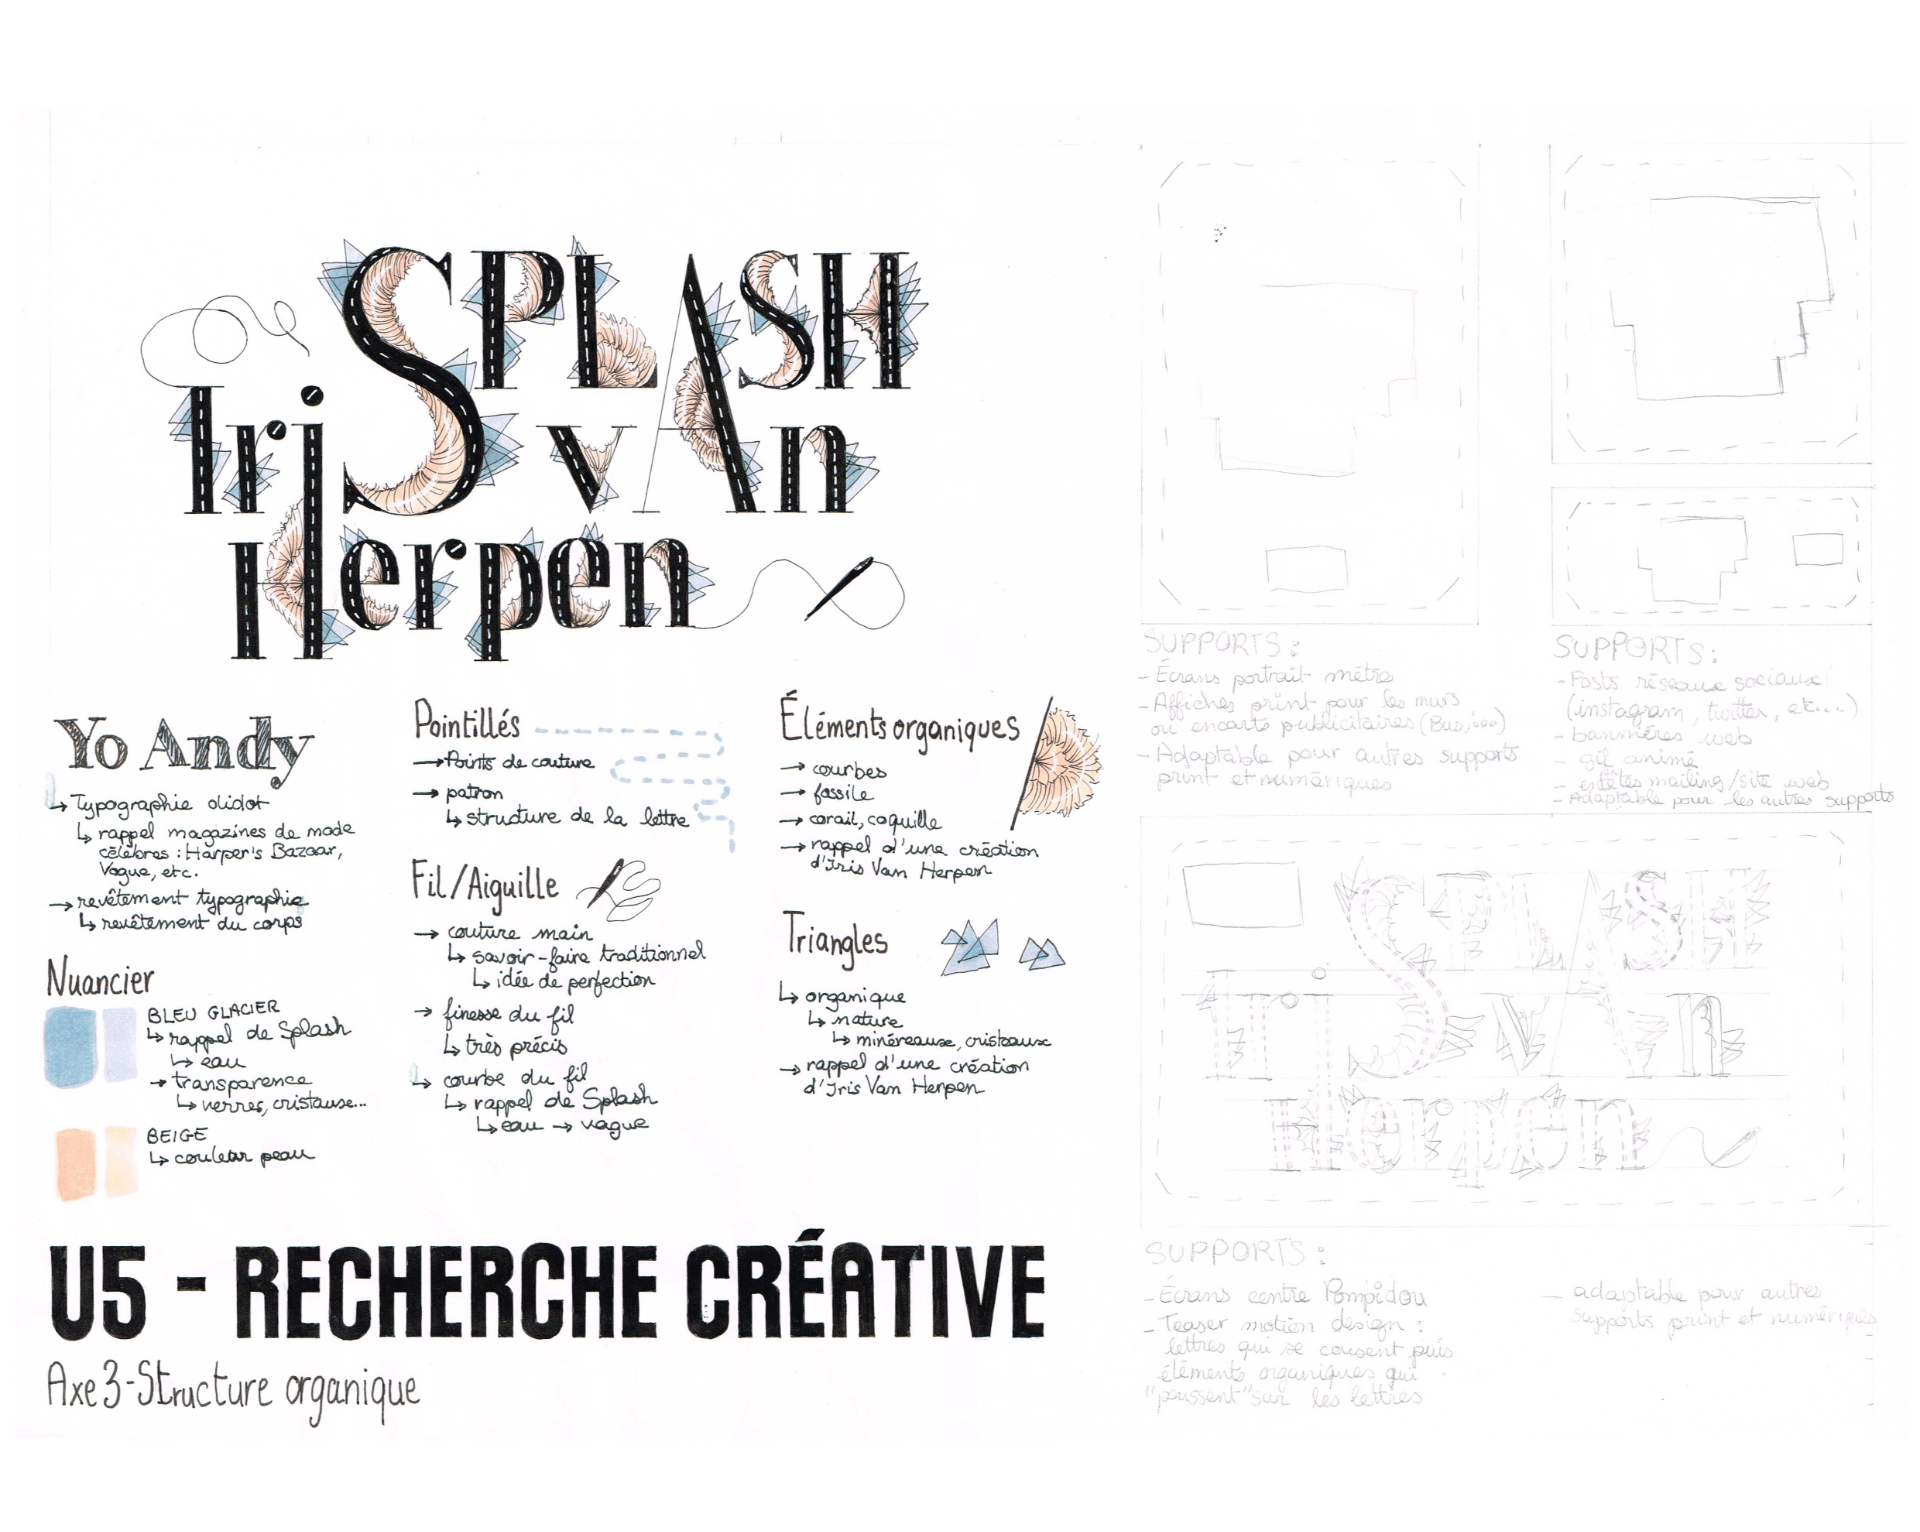 SPLASH
Iris vAn
Herpen
Yo Andy
↳ Typographie didot
↳ rappel magazines de mode
célèbres : Harper's Bazaar,
Vogue, etc.
→ revêtement typographie
↳ revêtement du corps
Nuancier
BLEU GLACIER
↳ rappel de Splash
↳ eau
→ transparence
↳ verres, cristaux...
BEIGE
↳ couleur peau
Pointillés
→ Points de couture
→ patron
↳ structure de la lettre
Fil/Aiguille
→ couture main
↳ savoir-faire traditionnel
↳ idée de perfection
→ finesse du fil
↳ très précis
↳ courbe du fil
↳ rappel de Splash
↳ eau → vague
Éléments organiques
→ courbes
→ fossile
→ corail, coquille
→ rappel d'une création
d'Iris Van Herpen
Triangles
↳ organique
↳ nature
↳ minéreaux, cristeaux
→ rappel d'une création
d'Iris Van Herpen
U5 - RECHERCHE CRÉATIVE
Axe 3-Structure organique
SUPPORTS :
- Écrans portrait métro
- Affiches print pour les murs
ou encarts publicitaires (Bus, ...)
- Adaptable pour autres supports
print et numériques
SUPPORTS :
- Posts réseaux sociaux
(instagram, twitter, etc...)
- bannières web
- gif animé
- entêtes mailing/site web
- Adaptable pour les autres supports
SPLASH
Iris vAn
Herpen
SUPPORTS :
- Écrans centre Pompidou
- Teaser motion design :
lettres qui se cousent puis
éléments organiques qui
"poussent" sur les lettres
- adaptable pour autres
supports print et numériques